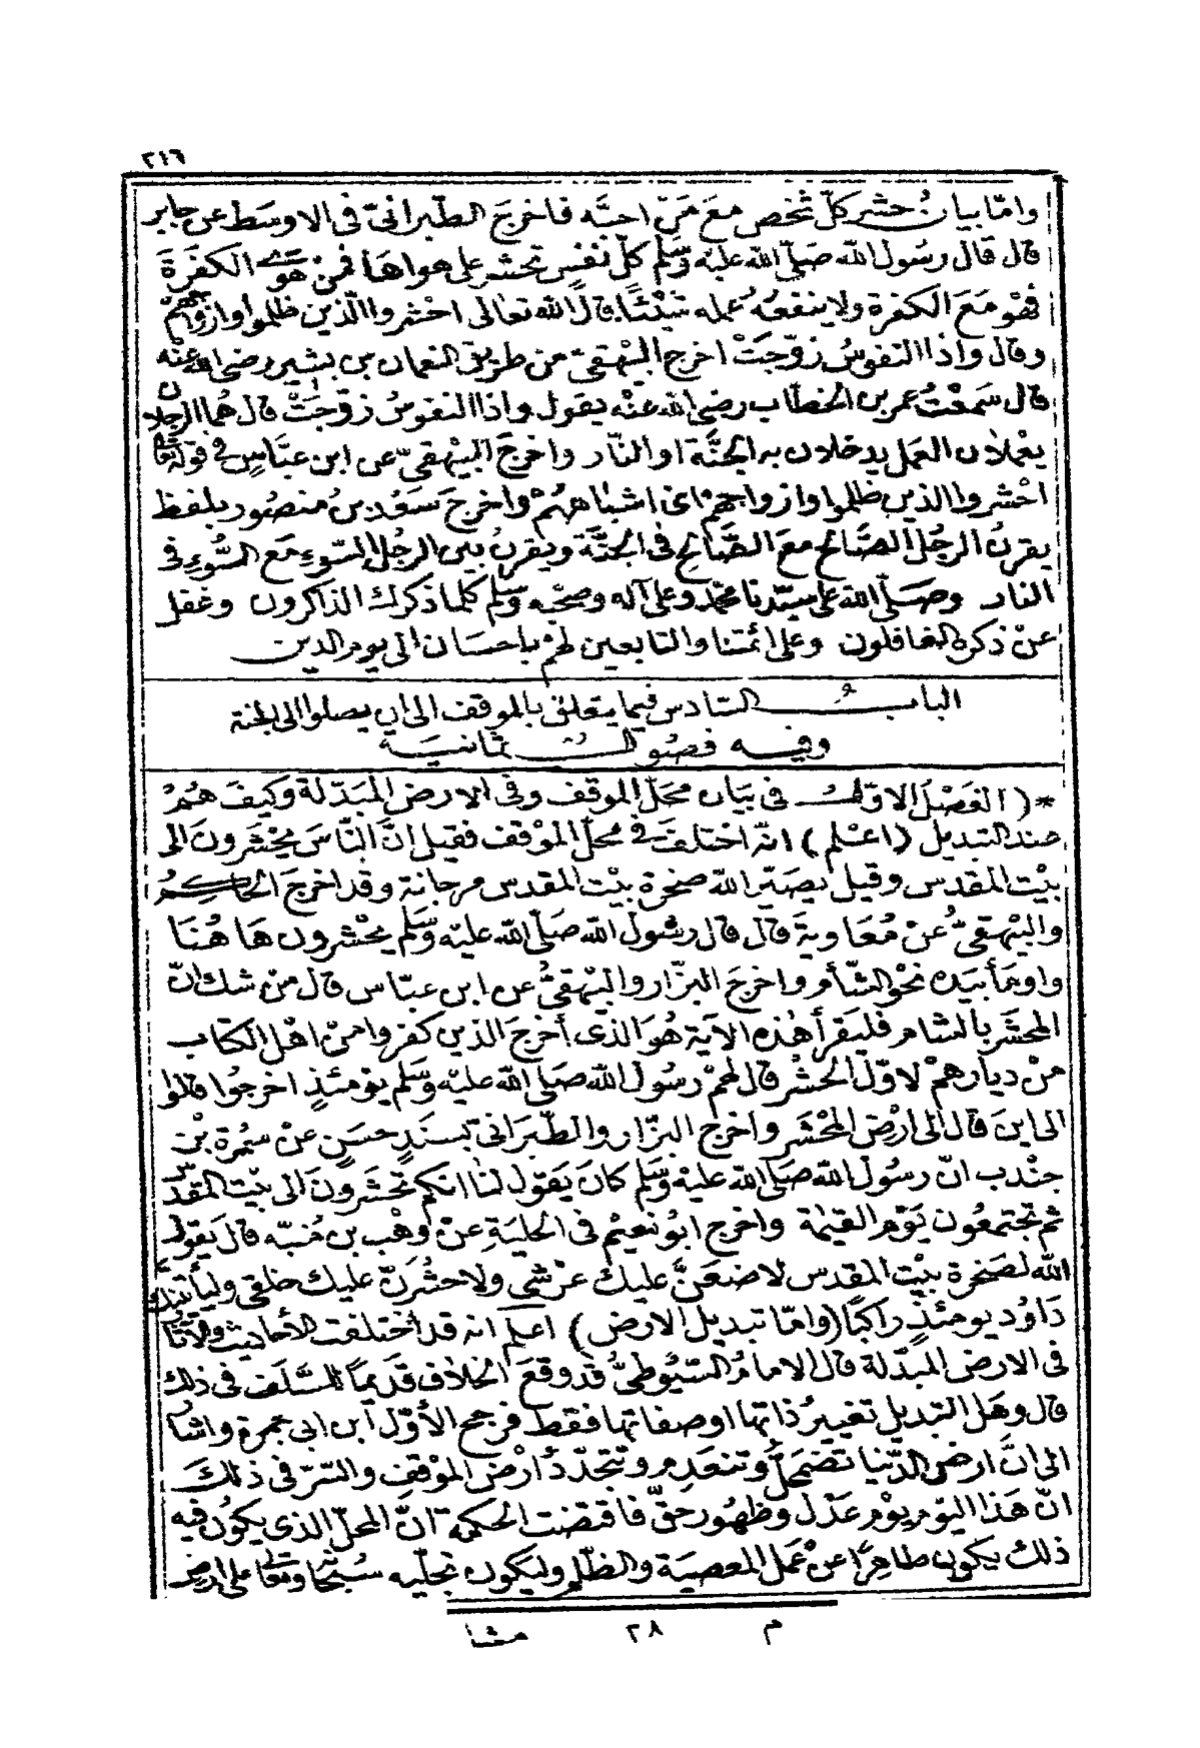 ٢١٦
وامّا بيانُ حشر كلّ شخص معَ مَنْ احبّه فاخرجَ الطّبرانىّ فى الاوسَط عن جابر
قال قال رسُول الله صَلّى الله عليْه وَسَلّم كلّ نفسٍ تحشر على هواهَا فمنْ هوَى الكفرَةَ
فهوَ مَعَ الكفرة ولا ينفعهُ عمله شيْئًا قالَ الله تعالى احْشروا الّذين ظلموا وازوَاجَهمْ
وقال واذا النفوسُ زوّجَتْ اخرج البيْهقىّ من طريق النعمان بن بشير رضى الله عنه
قال سَمعْتُ عمر بن الخطّاب رضى الله عنْه يقول واذا النفوسُ زوّجَتْ قال هُما الرجلان
يعْملان العمل يدخلان به الجنَّة او النّار واخرجَ البيْهقىّ عن ابن عبّاسٍ فى قوله تعالى
احْشروا الذين ظلموا وازواجهمْ اى اشباههُمْ واخرجَ سَعيْد بنُ منصُور بلفظ
يقرنُ الرجُل الصّالح معَ الصّالح فى الجنّة ويقرنُ بين الرجُل السّوءِ مَع السُّوءِ فى
النار وصَلّى الله على سيّدنا محمّد وعلى آله وصحْبه وَسَلّم كلما ذكرك الذاكرون وغفل
عنْ ذكره الغافلون وعلى ائمّتنا والتابعين لهمْ باحسَان الى يوم الدين
البابُ السّادس فيما يتعلق بالموقف الى ان يصلوا الى الجنة
وفيه فصُولٌ ثمانيَة
*( الفَصْل الاوّل فى بيَان محَلّ الموقف وفى الارض المبَدّلة وكيفَ هُمْ
عند التبديل (اعْلم) انّه اختلفَ فى محلّ الموْقف فقيل انَّ النّاسَ يحْشَرونَ الى
بيْت المقدس وقيل يصَيّر الله صخرة بيْت المقدس مرجانة وقد اخرجَ الحاكمُ
والبيْهقىُّ عنْ مُعَاويةَ قال قال رسُول الله صَلّى الله عليْه وَسَلّم يحْشرون هَا هُنَا
واومَأ بيَده نحْو الشّأم واخرجَ البزّار والبيْهقىُّ عن ابن عبّاس قال منْ شك انّ
المحشَر بالشام فليَقرأ هٰذه الاٰيَة هُوَ الذى أخرجَ الذين كفروا منْ اهْل الكتاب
منْ ديارهمْ لاوّل الحَشْر قال لهمْ رسُول الله صَلّى الله عليْه وَسَلّم يوْمئذٍ اخرجُوا قالوا
الى اينَ قال الى ارْضِ المحْشَر واخرج البزّار والطّبَرانى بسنَدٍ حسَنٍ عنْ سمُرة بْن
جنْدب انّ رسُولَ الله صَلّى الله عليْه وَسَلّم كانَ يَقول لنا انكم تحْشَرونَ الى بيْت المقدّس
ثم تجتمعُون يَوْم القيٰمة واخرج ابُو نعيْمٍ فى الحليَةِ عنْ وهْب بن مُنبّه قالَ يَقول
الله لصَخرة بيْت المقدس لاضعَنَّ عليكَ عرْشى ولاحشُرَنّ عليك خلقى وليَأتيَنّك
دَاوُد يومئذٍ راكبًا (وامّا تبديل الارض) اعلم انه قد اختلفت الأحاديث والآثار
فى الارض المبدّلة قال الامامُ السّيُوطىُّ قدْ وقعَ الخلاف قدَيمًا للسّلَف فى ذلك
قال وهَل التبديل تغييرُ ذاتها او صفاتها فقط فرجح الأوّل ابن ابى جمرة واشار
الى انَّ ارض الدّنيا تضمَحلُّ وتنعَدم وتتجَدّدُ أرْض الموْقف والسّرّ فى ذلكَ
انّ هَذا اليَوم يوْم عَدْل وظهُور حقّ فاقتضت الحكمة انَّ المحلّ الذى يكوُن فيه
ذلك يكون طاهِرًا عنْ عمَل المعصيَة والظّلم وليكون تجلّيه سُبْحَانه وتعَالى على ارض
م ٢٨ مشا